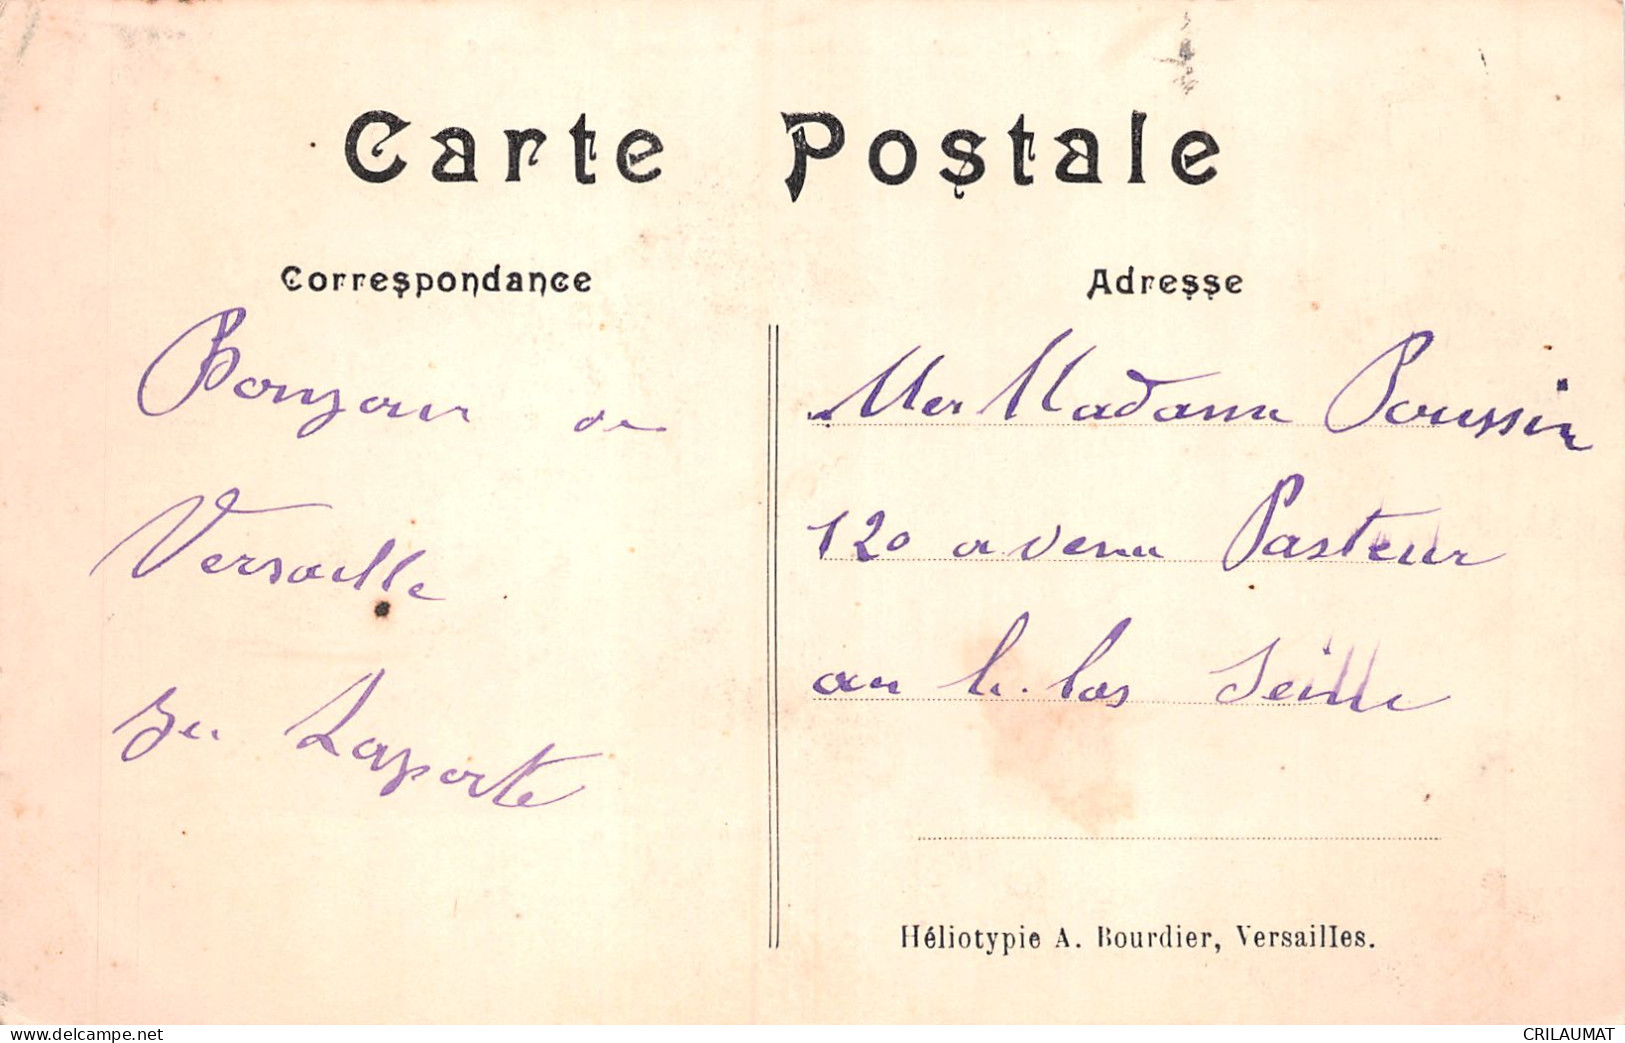 Carte Postale
Correspondance
Bonjour de
Versaille
Laporte
Adresse
Madame Poussin
120 avenu Pasteur
au Lilas Seine
Héliotypie A. Bourdier, Versailles.
www.delcampe.net
CRILAUMAT